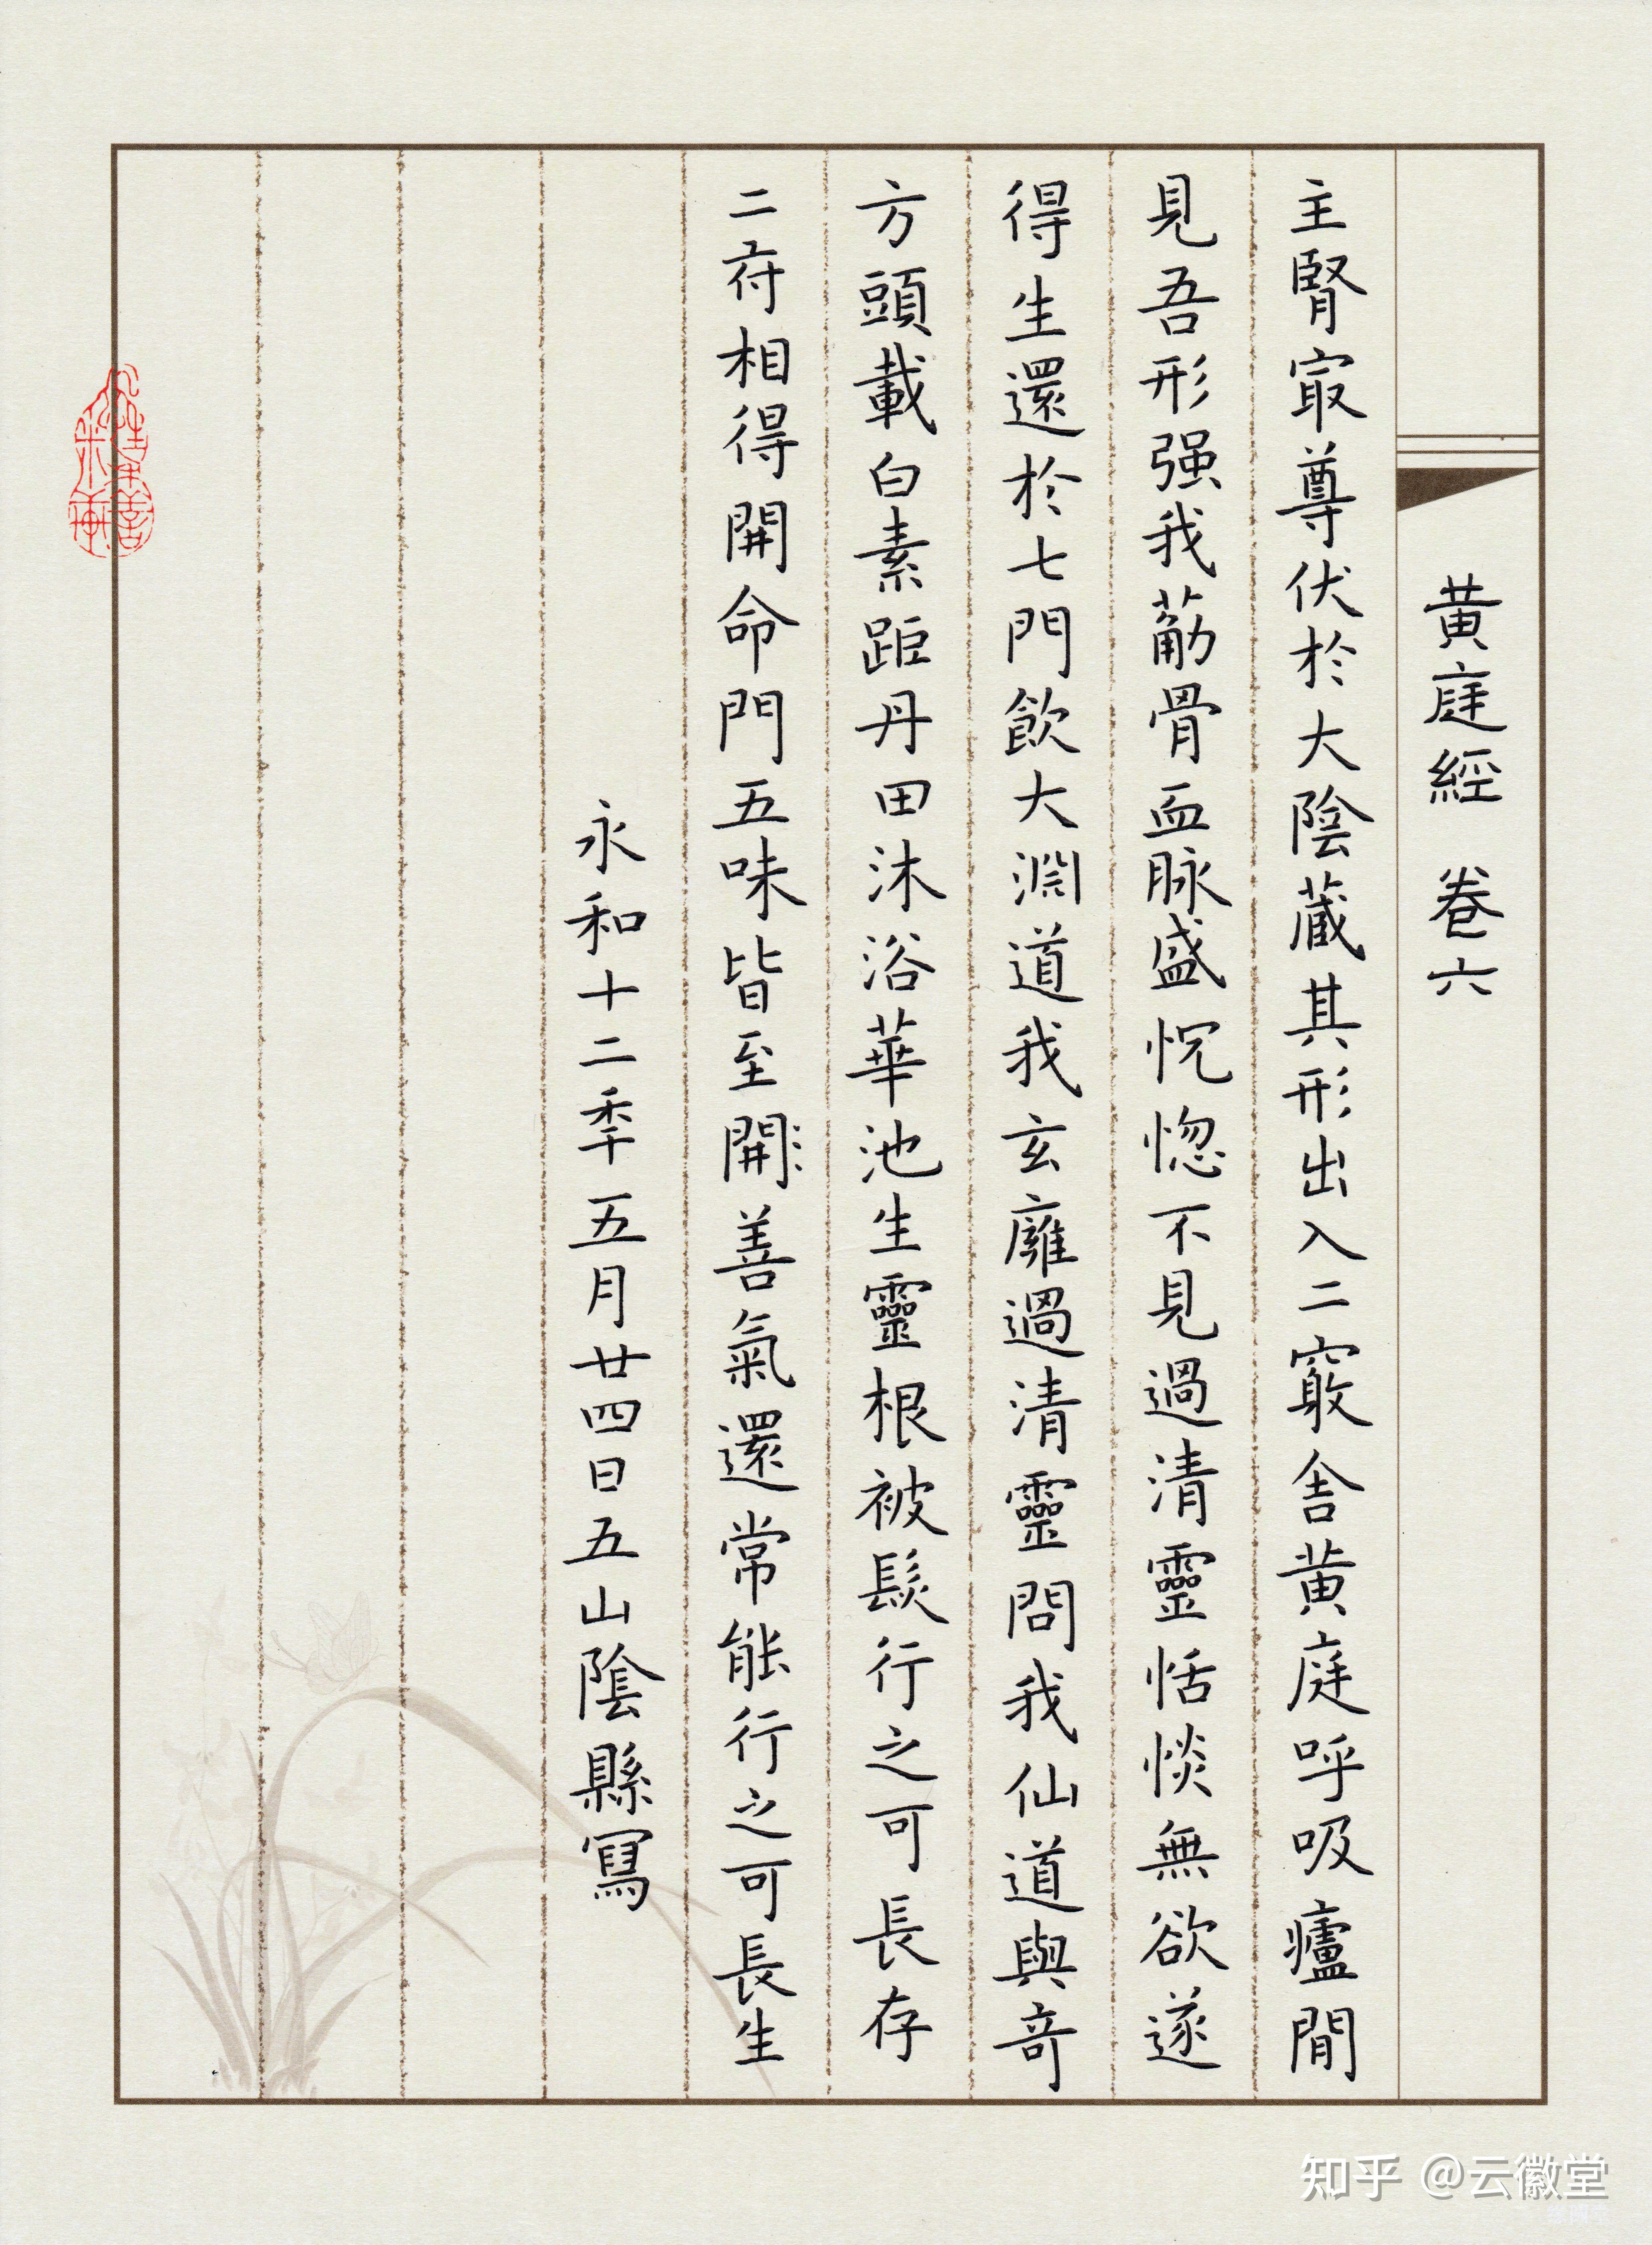 黄庭經 卷六
主腎冣尊伏於大陰蔵其形出入二竅舍黄庭呼吸廬間
見吾形强我筋骨血脉盛怳惚不見過清靈恬惔無欲遂
得生還於七門飲大淵道我玄廱過清靈問我仙道與奇
方頭載白素距丹田沐浴華池生靈根被髮行之可長存
二府相得開命門五味皆至開善氣還常能行之可長生
永和十二秊五月廿四日五山陰縣寫
知乎 @云徽堂